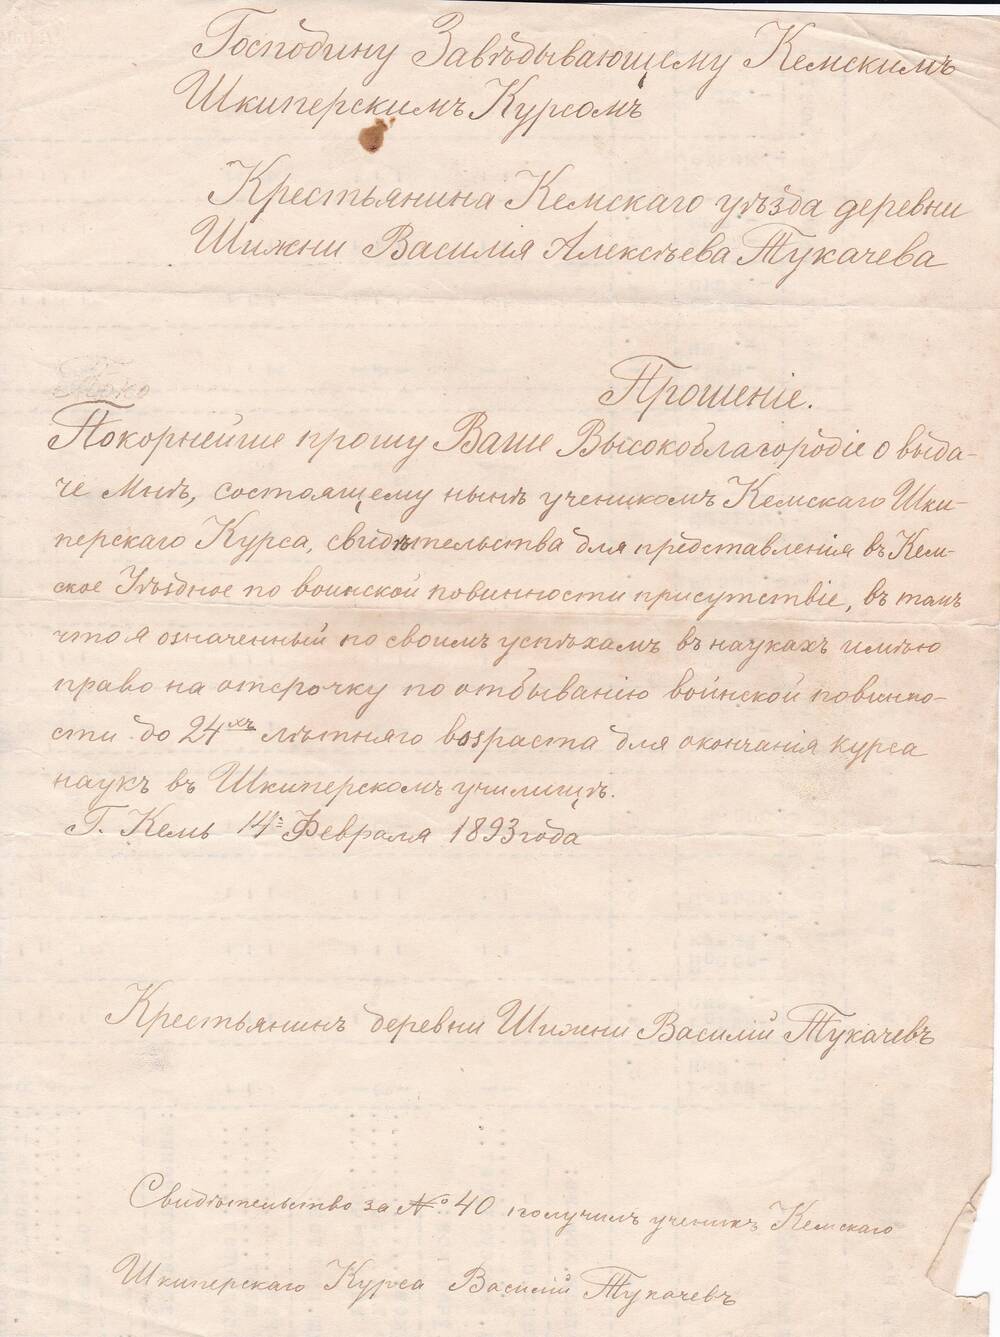 Господину Завѣдывающему Кемскимъ
Шкиперскимъ Курсомъ
Крестьянина Кемскаго уѣзда деревни
Шижни Василія Алексѣева Тукачева
Прошеніе.
Покорнейше прошу Ваше Высокоблагородіе о выда-
че мнѣ, состоящему нынѣ ученикомъ Кемскаго Шки-
перскаго Курса, свидѣтельства для представленія въ Кем-
ское Уѣздное по воинской повинности присутствіе, въ томъ
что я означенный по своимъ успѣхамъ въ наукахъ имѣю
право на отсрочку по отбыванію воинской повинно-
сти до 24хъ лѣтняго возраста для окончанія курса
наукъ въ Шкиперскомъ училищѣ.
Г. Кемь 14= Февраля 1893 года
Крестьянинъ деревни Шижни Василій Тукачевъ
Свидѣтельство за № 40 получилъ ученикъ Кемскаго
Шкиперскаго Курса Василій Тукачевъ